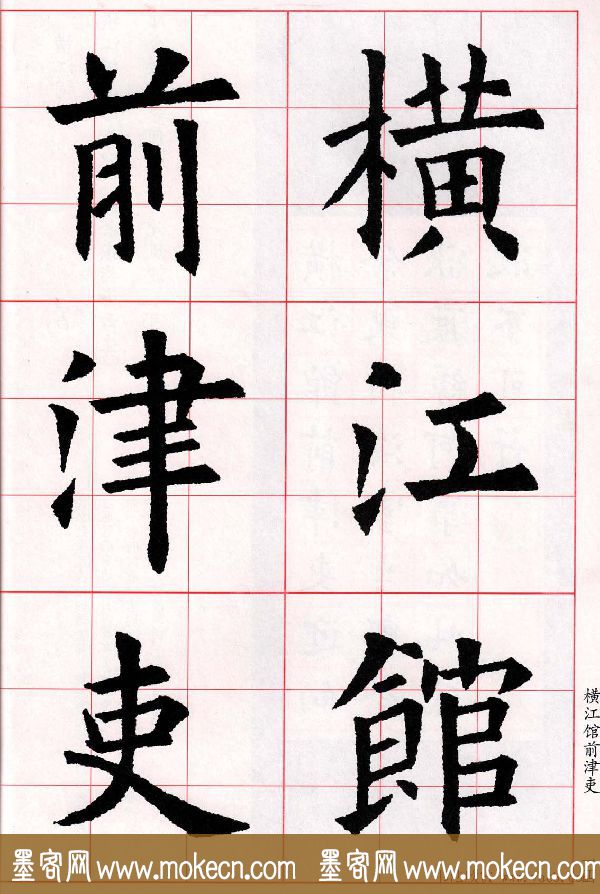 橫江館
前津吏
横江馆前津吏
墨客网 www.mokecn.com 墨客网 www.mokecn.com